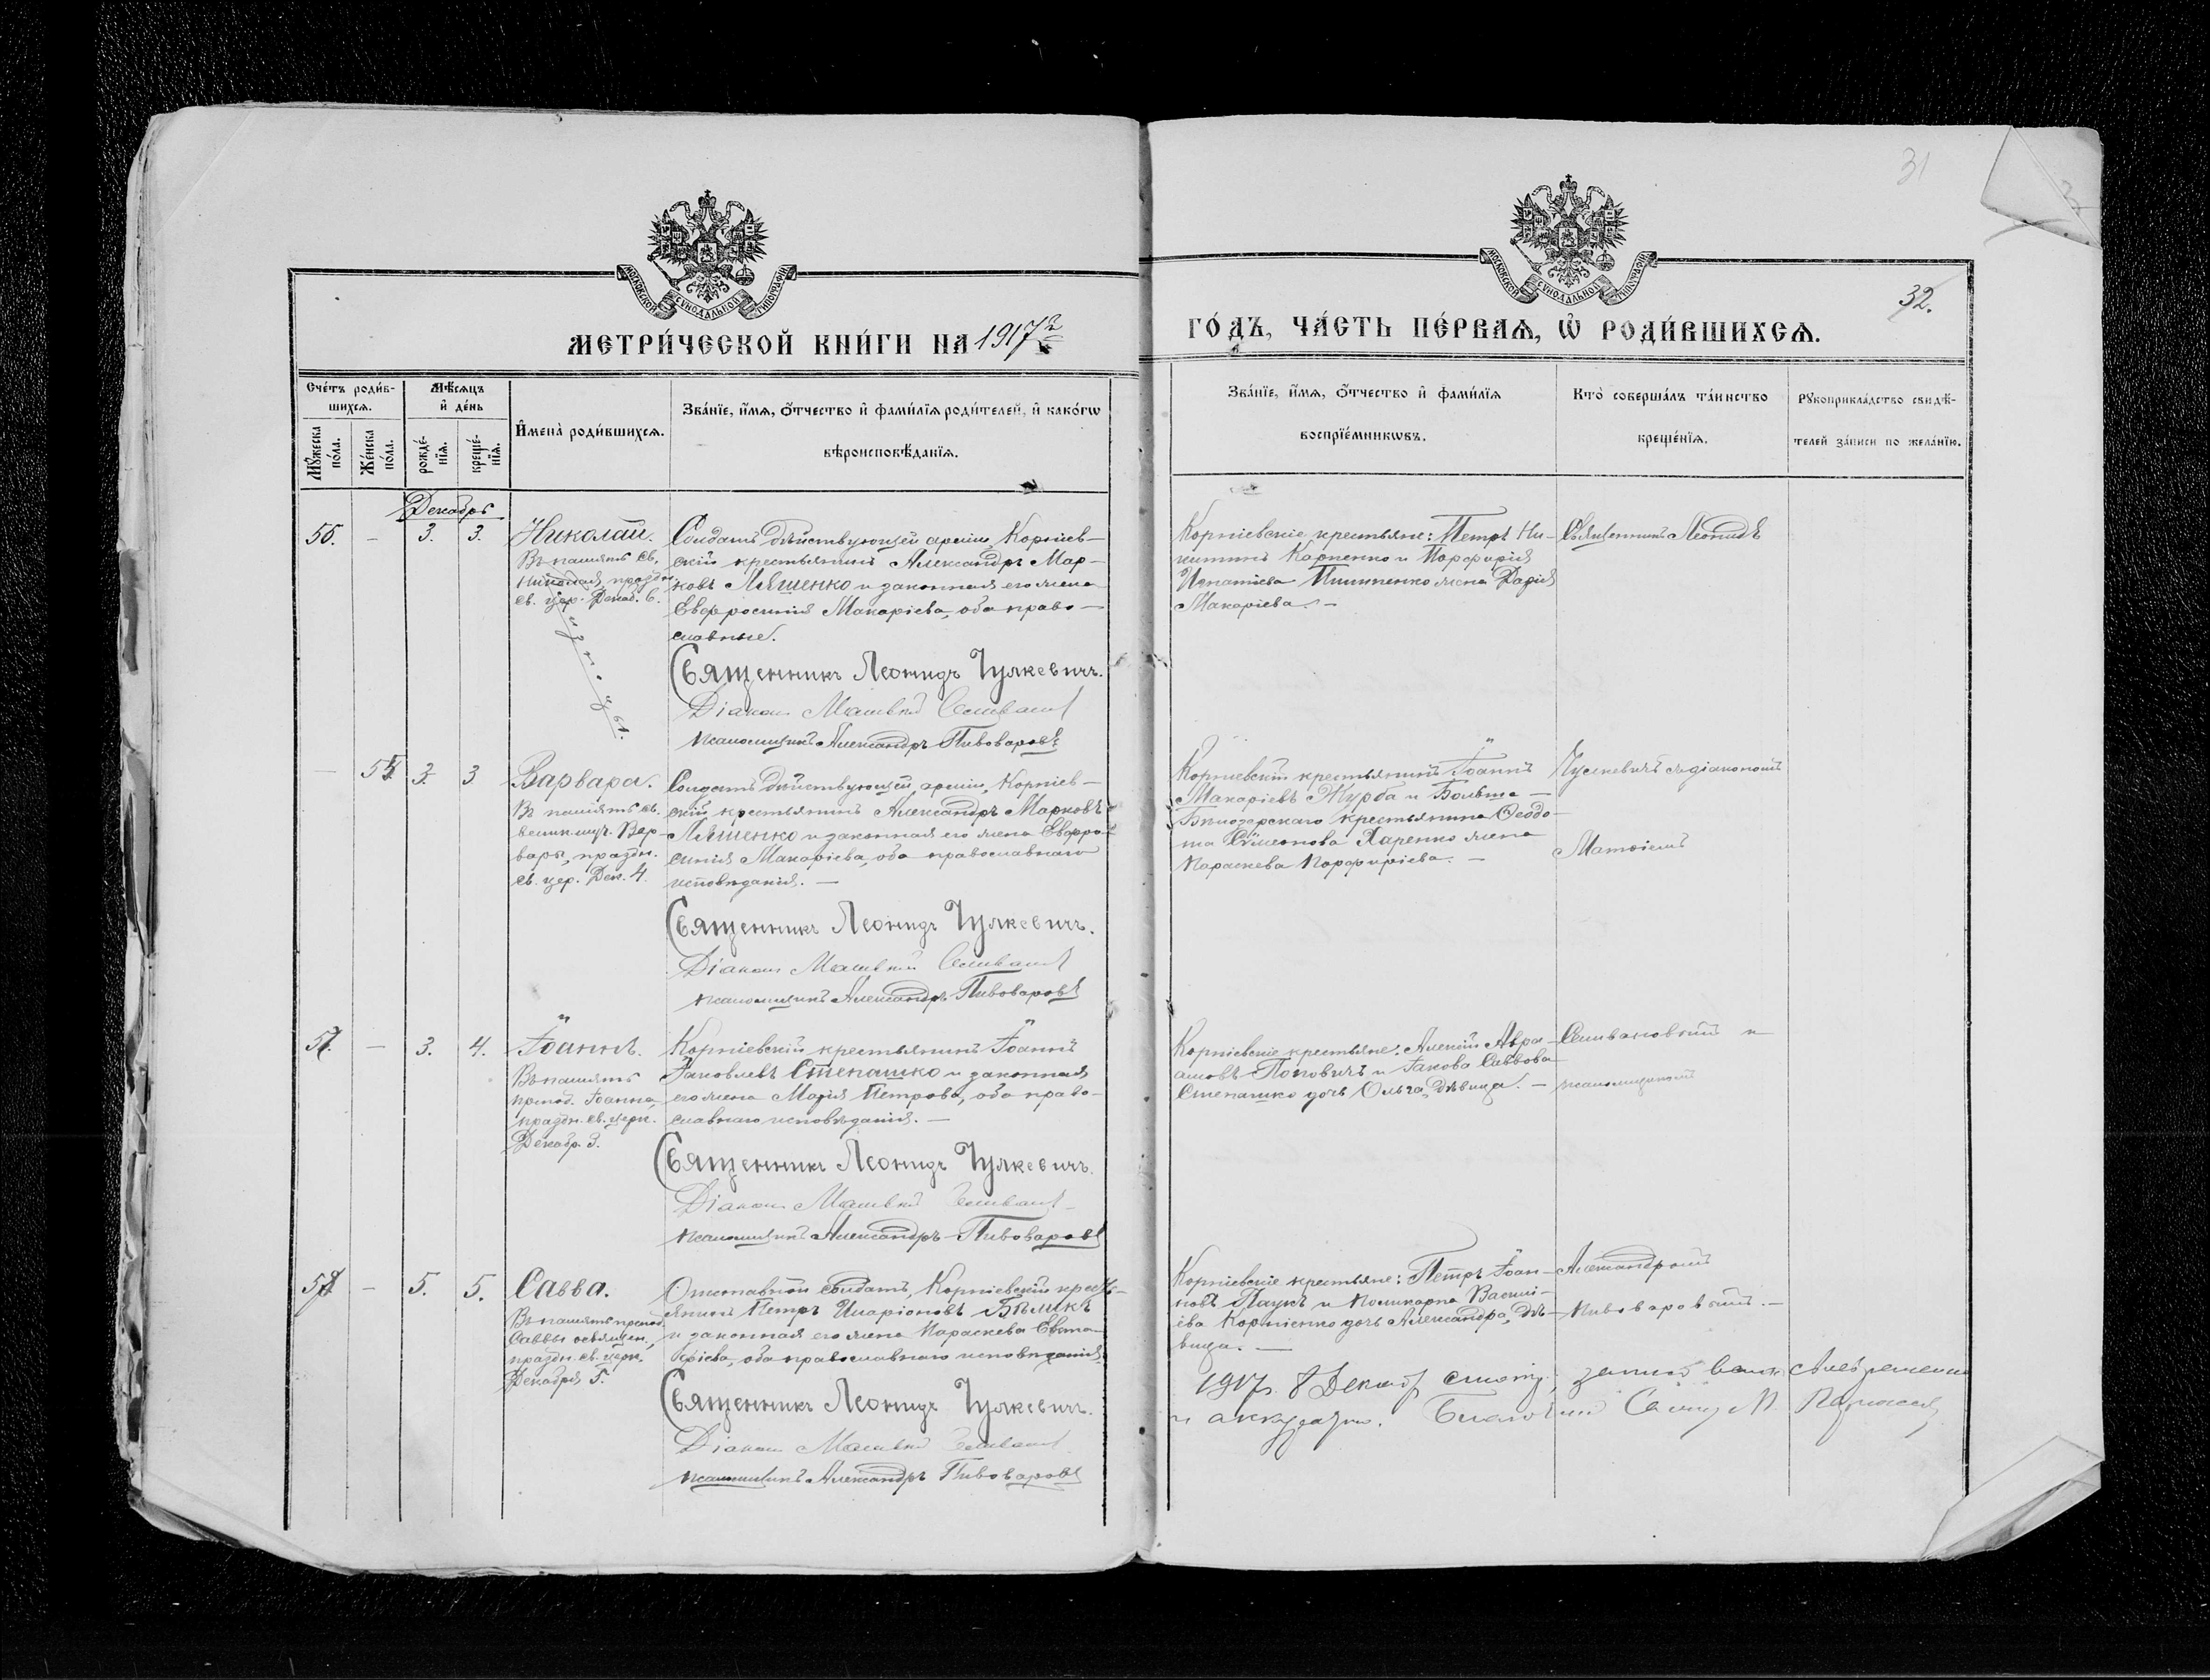 31
МОСКОВСКОЙ СѴНОДАЛЬНОЙ ТИПОГРАФІИ
МОСКОВСКОЙ СѴНОДАЛЬНОЙ ТИПОГРАФІИ
32.
МЕТРИ́ЧЕСКОЙ КНИ́ГИ НА 1917 г.
ГО́ДЪ, ЧА́СТЬ ПЕ́РВАѦ, Ѡ҆ РОДИ́ВШИХСѦ.
Сче́тъ роди́вшихсѧ.
Мꙋ́жеска по́ла.
Же́нска по́ла.
Мѣ́сѧцъ и҆ де́нь
рожде́нїѧ.
креще́нїѧ.
И҆мена̀ роди́вшихсѧ.
Зва́нїе, и҆́мѧ, ѻ҆́тчество и҆ фами́лїѧ роди́телей, и҆ како́гѡ
вѣроисповѣ́данїѧ.
Зва́нїе, и҆́мѧ, ѻ҆́тчество и҆ фами́лїѧ
воспрїе́мникѡвъ.
Кто̀ соверша́лъ та́инство
креще́нїѧ.
Рꙋкоприкла́дство свидѣ́-
телей за́писи по жела́нїю.
Декабрь
3. 3.
Николай.
Въ память св.
Николая, праздн.
св. цер. Декаб. 6.
Солдатъ дѣйствующей арміи, Корніев-
скій крестьянинъ Александръ Мар-
ковъ Ляшенко и законная его жена
Евфросинія Макаріева, оба право-
славные.
Священникъ Леонидъ Чулкевичъ.
Діаконъ Матвѣй
псаломщикъ Александръ Пивоваровъ
Корніевскіе крестьяне: Петръ Ни-
китинъ Карпенко и Порфирія
Игнатіева жена Дарія
Макаріева. –
Священникъ Леонидъ
близнецы.
3. 3
Варвара.
Въ память св.
великмуч. Вар-
вары, праздн.
св. цер. Дек. 4.
Солдатъ дѣйствующей арміи, Корніев-
скій крестьянинъ Александръ Марковъ
Ляшенко и законная его жена Евфро-
синія Макаріева, оба православнаго
исповѣданія. –
Священникъ Леонидъ Чулкевичъ.
Діаконъ Матвѣй
псаломщикъ Александръ Пивоваровъ
Корніевскій крестьянинъ Іоаннъ
Макаріевъ Журба и Больше-
крестьянина Ѳеодо-
та Сѵмеонова Харенко жена
Параскева Порфиріева. –
Чулкевичъ съ діакономъ
Матвіемъ
57. – 3. 4.
Іоаннъ.
Въ память
препод. Іоанна,
праздн. св. церк.
Декабр. 3.
Корніевскій крестьянинъ Іоаннъ
Іаковлевъ Степашко и законная
его жена Марія Петрова, оба право-
славнаго исповѣданія. –
Священникъ Леонидъ Чулкевичъ.
Діаконъ Матвѣй
псаломщикъ Александръ Пивоваровъ
Корніевскіе крестьяне: Алексій Авра-
амовъ Поповичъ и Іакова Саввова
Степашко дочь Ольга, дѣвица. –
и
псаломщикомъ
– 5. 5.
Савва.
Въ память препод.
Саввы освящен.,
праздн. св. церк.
Декабря 5.
Отставной солдатъ, Корніевскій кресть-
янинъ Петръ Иларіоновъ Бѣликъ
и законная его жена Параскева Евста-
фіева, оба православнаго исповѣданія.
Священникъ Леонидъ Чулкевичъ.
Діаконъ Матвѣй
псаломщикъ Александръ Пивоваровъ
Корніевскіе крестьяне: Петръ Іоан-
новъ Паукъ и Поликарпа Васили-
ева Корніенко дочь Александра, дѣ-
вица. –
Александромъ
Пивоваровымъ. –
1917 г. 8 Декабр
и аккуратно.